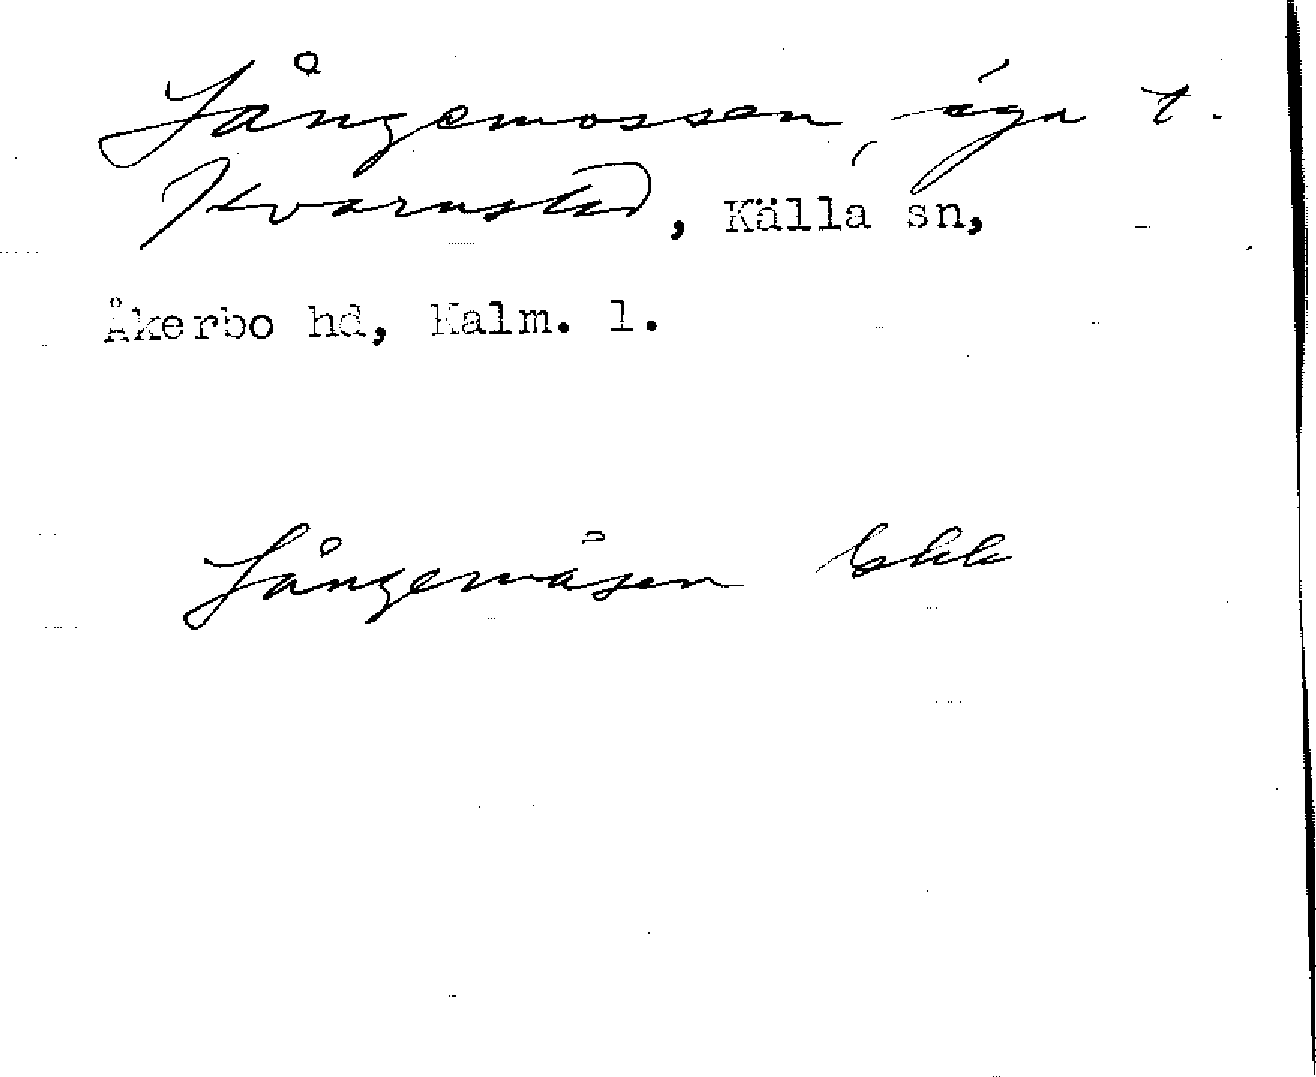 Långemossen, äga t.
Kvarnstad, Källa sn,
Åkerbo hd, Kalm. l.
Långemåsen